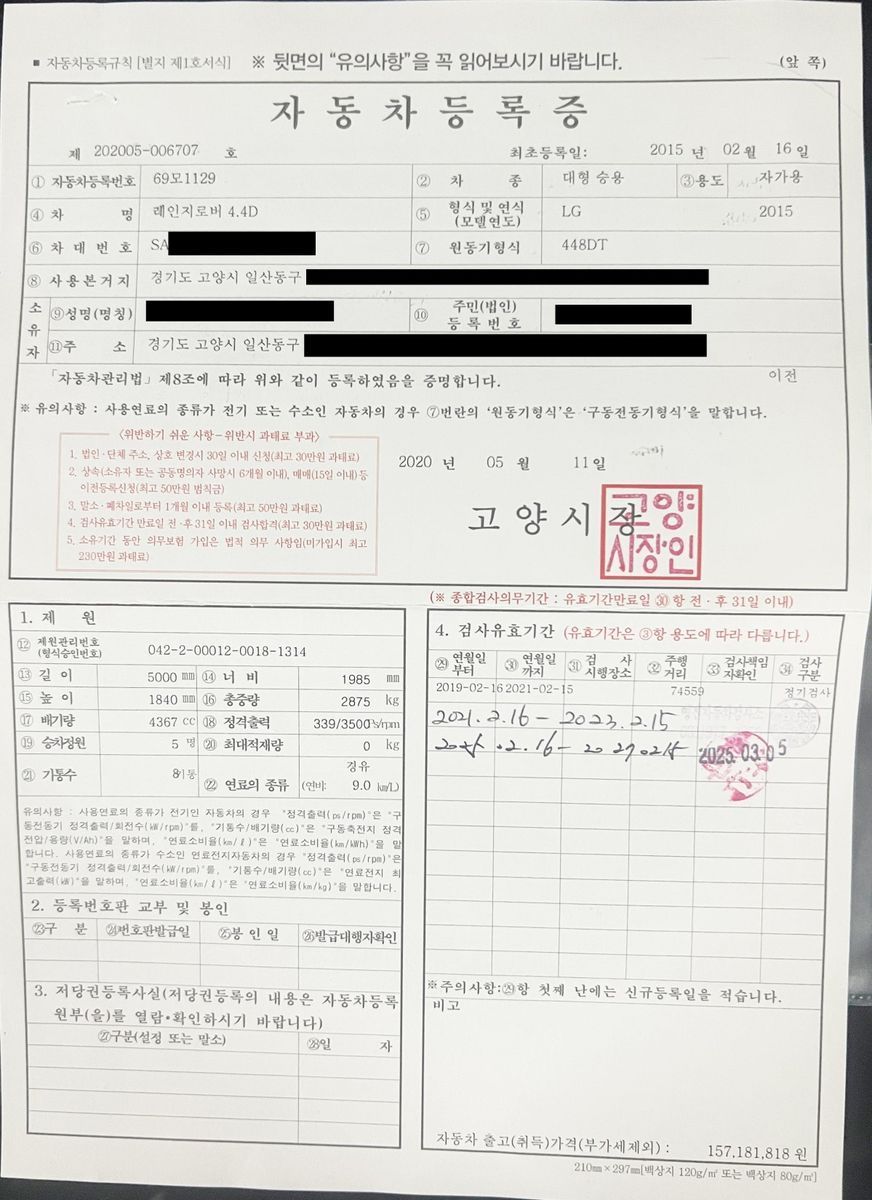 ■ 자동차등록규칙 [별지 제1호서식] ※ 뒷면의 “유의사항”을 꼭 읽어보시기 바랍니다. (앞 쪽)
자 동 차 등 록 증
제 202005-006707 호 최초등록일: 2015 년 02 월 16 일
① 자동차등록번호 69모1129 ② 차 종 대형 승용 ③용도 자가용
④ 차 명 레인지로버 4.4D ⑤ 형식 및 연식 (모델연도) LG 2015
⑥ 차 대 번 호 SA ⑦ 원동기형식 448DT
⑧ 사 용 본 거 지 경기도 고양시 일산동구
소유자 ⑨성명(명칭) ⑩ 주민(법인) 등 록 번 호
⑪주 소 경기도 고양시 일산동구
「자동차관리법」 제8조에 따라 위와 같이 등록하였음을 증명합니다. 이전
※ 유의사항 : 사용연료의 종류가 전기 또는 수소인 자동차의 경우 ⑦번란의 ‘원동기형식’은 ‘구동전동기형식’을 말합니다.
〈위반하기 쉬운 사항-위반시 과태료 부과〉
1. 법인·단체 주소, 상호 변경시 30일 이내 신청(최고 30만원 과태료)
2. 상속(소유자 또는 공동명의자 사망시 6개월 이내), 매매(15일 이내) 등
이전등록신청(최고 50만원 범칙금)
3. 말소·폐차일로부터 1개월 이내 등록(최고 50만원 과태료)
4. 검사유효기간 만료일 전·후 31일 이내 검사합격(최고 30만원 과태료)
5. 소유기간 동안 의무보험 가입은 법적 의무 사항임(미가입시 최고
230만원 과태료)
2020 년 05 월 11일
고 양 시 장
고양시장인
(※ 종합검사의무기간 : 유효기간만료일 ㉚ 항 전·후 31일 이내)
1. 제 원
⑫ 제원관리번호 (형식승인번호) 042-2-00012-0018-1314
⑬ 길 이 5000 mm ⑭ 너 비 1985 mm
⑮ 높 이 1840 mm ⑯ 총중량 2875 kg
⑰ 배기량 4367 cc ⑱ 정격출력 339/3500 ps/rpm
⑲ 승차정원 5 명 ⑳ 최대적재량 0 kg
㉑ 기통수 8기통 ㉒ 연료의 종류 경유 (연비: 9.0 km/L)
유의사항 : 사용연료의 종류가 전기인 자동차의 경우 "정격출력(ps/rpm)"은 "구
동전동기 정격출력/회전수(kW/rpm)"를, "기통수/배기량(cc)"은 "구동축전지 정격
전압/용량(V/Ah)"을 말하며, "연료소비율(km/ℓ)"은 "연료소비율(km/kWh)"을 말
합니다. 사용연료의 종류가 수소인 연료전지자동차의 경우 "정격출력(ps/rpm)"은
"구동전동기 정격출력/회전수(kW/rpm)"를, "기통수/배기량(cc)"은 "연료전지 최
고출력(kW)"을 말하며, "연료소비율(km/ℓ)"은 "연료소비율(km/kg)"을 말합니다.
2. 등록번호판 교부 및 봉인
㉓구 분 ㉔번호판발급일 ㉕봉 인 일 ㉖발급대행자확인
3. 저당권등록사실(저당권등록의 내용은 자동차등록
원부(을)를 열람·확인하시기 바랍니다)
㉗구분(설정 또는 말소) ㉘일 자
4. 검사유효기간 (유효기간은 ③항 용도에 따라 다릅니다.)
㉙ 연월일 부터 ㉚ 연월일 까지 ㉛ 검 사 시행장소 ㉜ 주행 거리 ㉝ 검사책임 자확인 ㉞ 검사 구분
2019-02-16 2021-02-15 74559 정기검사
2021. 2. 16 - 2023. 2. 15
.02.16 - 2027 02 15 2025. 03. 05
※주의사항:㉙항 첫째 난에는 신규등록일을 적습니다.
비고
자동차 출고(취득)가격(부가세제외) : 157,181,818 원
210㎜×297㎜[백상지 120g/㎡ 또는 백상지 80g/㎡]